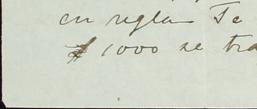 en regla Te
$1000 se tra